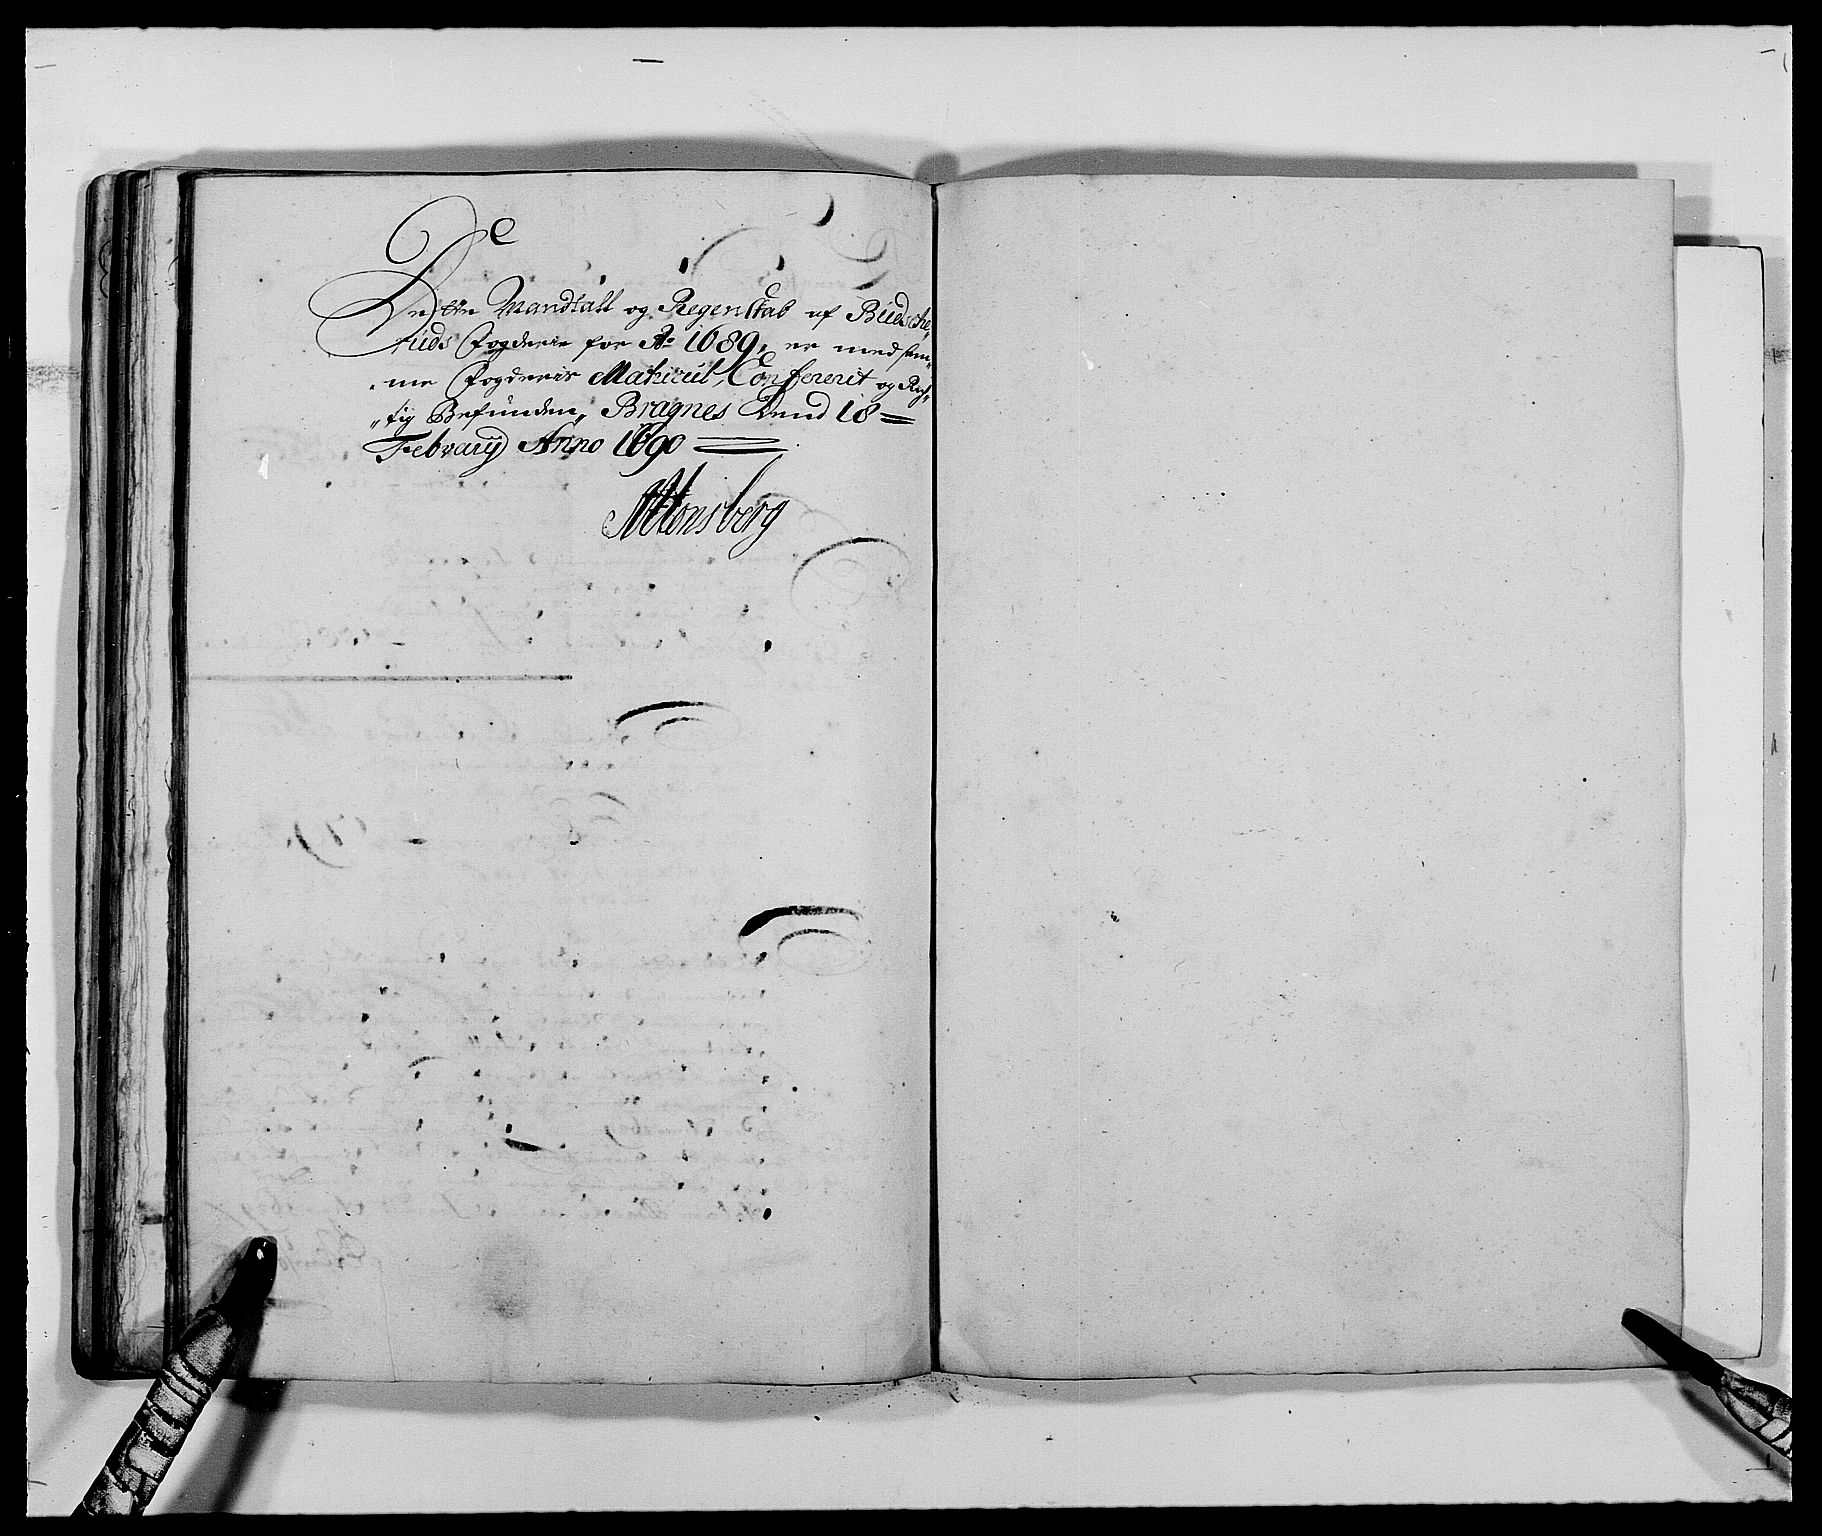 Dette Mandtall og Regenskab af Budsche„
ruds Fogderie for Ao 1689, er med sam„
me Fogderis Matricul, Confererit og Rig„
„tig Befunden, Bragnes Dend 18
Februarij Anno 1690
Monsberg